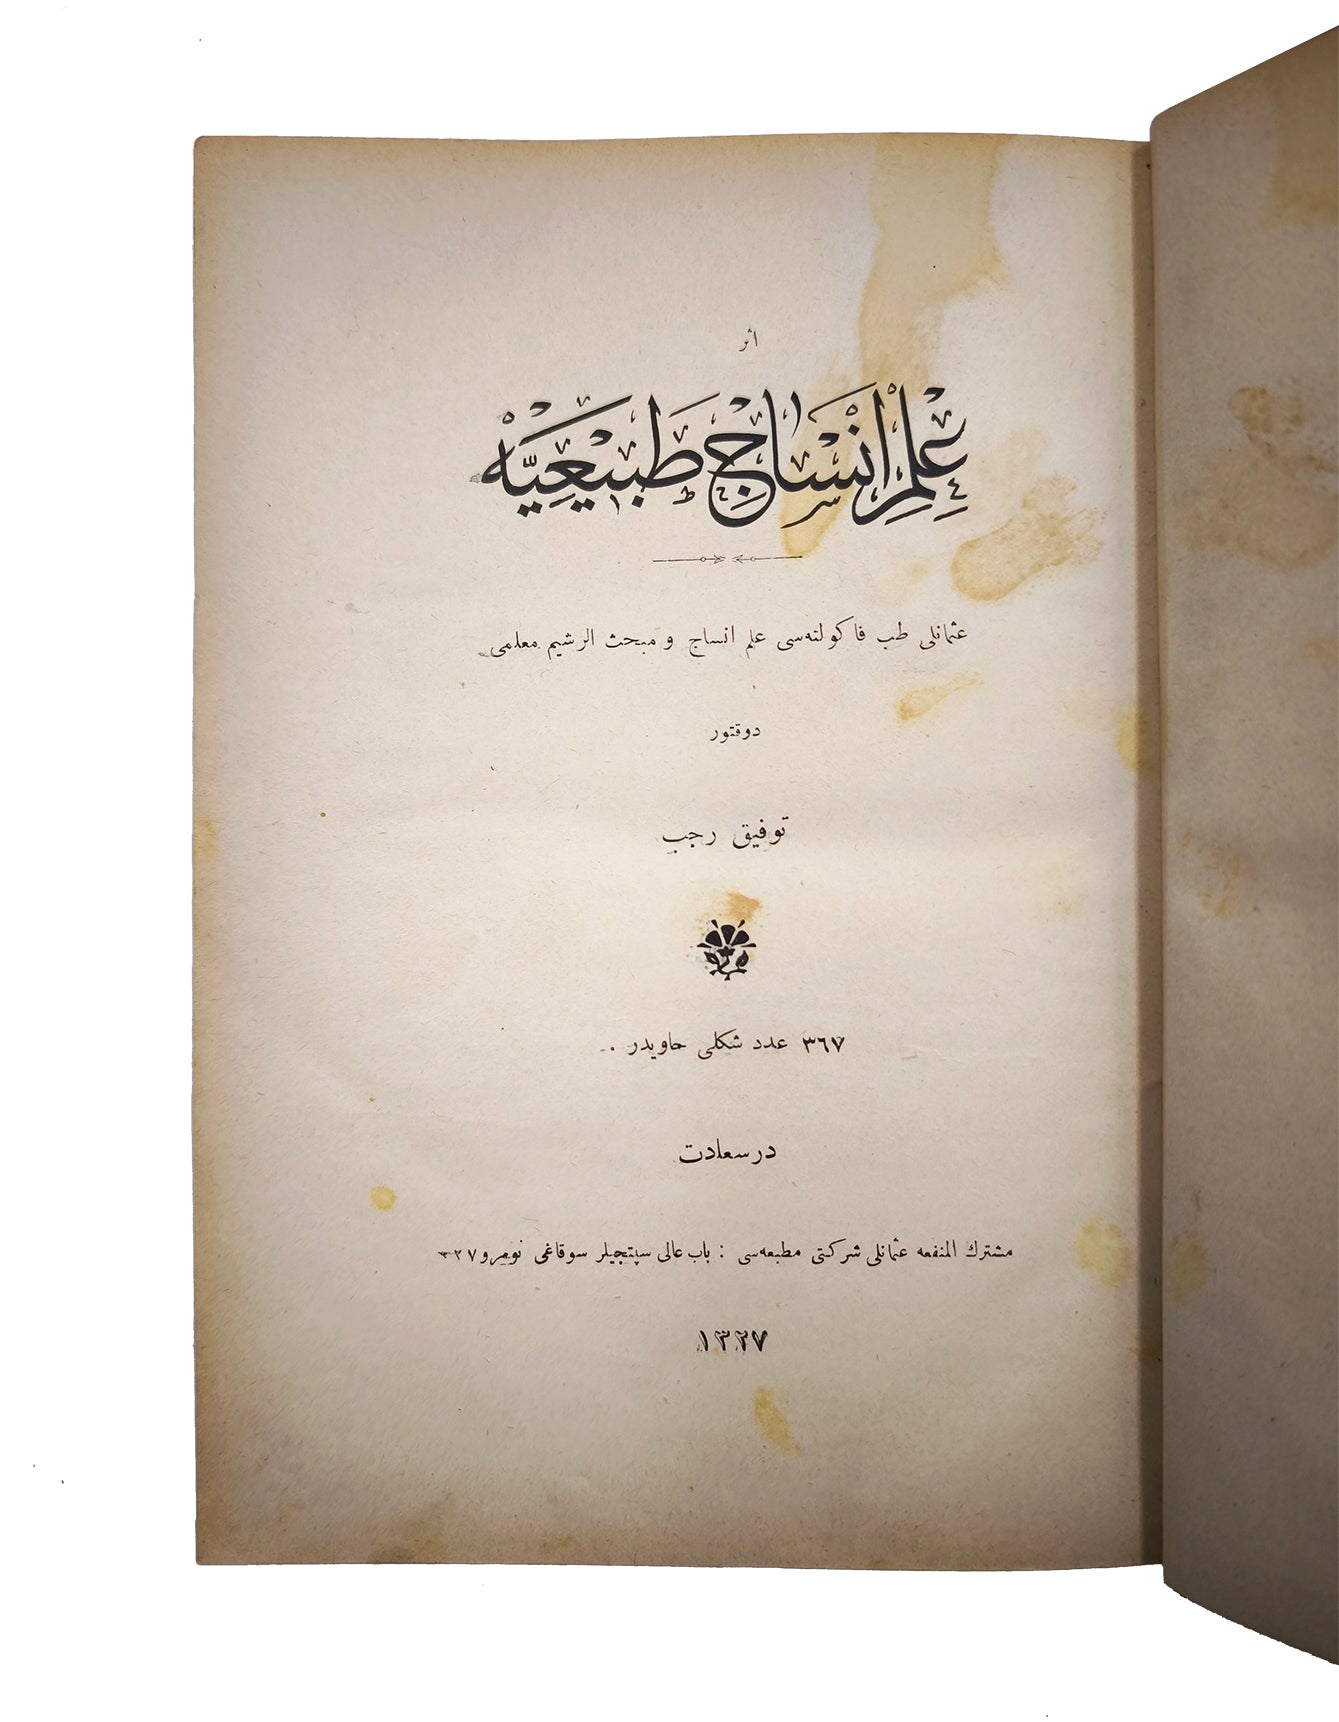 اثر
عِلْمِ اَنْسَاجِ طَبِيْعِيَّهْ
عثمانلی طب فاکولته‌سی علم انساج و مبحث الرشیم معلمی
دوقتور
توفیق رجب
٣٦٧ عدد شكلی حاویدر .
درسعادت
مشترك المنفعه عثمانلی شركتی مطبعه‌سی : باب عالی سپتجیلر سوقاغی نومرو
١٣٢٧